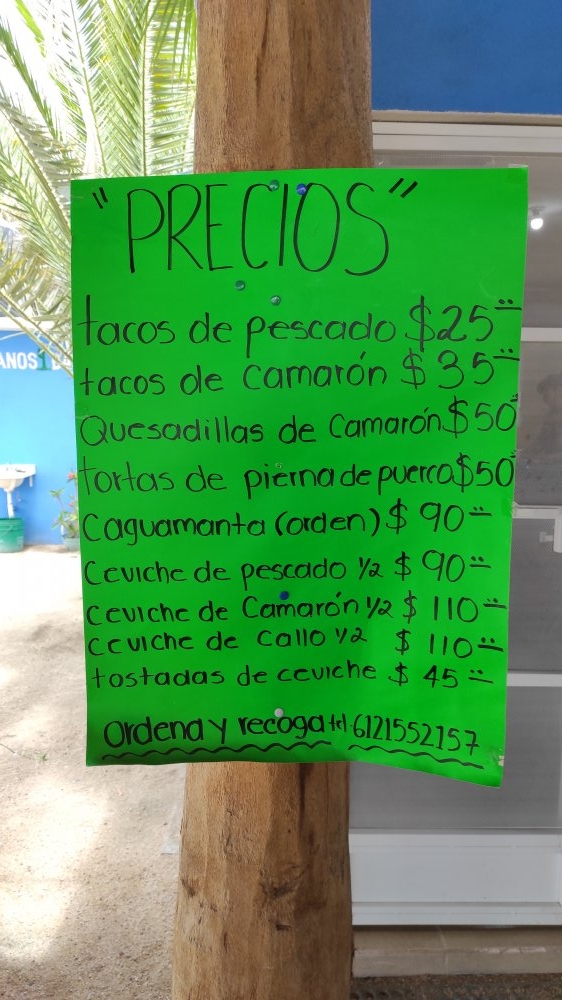 "PRECIOS"
tacos de pescado $25
tacos de camarón $35
Quesadillas de Camarón $50
tortas de pierna de puerco $50
Caguamanta (orden) $90
Ceviche de pescado 1/2 $90
Ceviche de Camarón 1/2 $110
ceviche de Callo 1/2 $110
tostadas de ceviche $45
Ordena y recoga tel. 6121552157